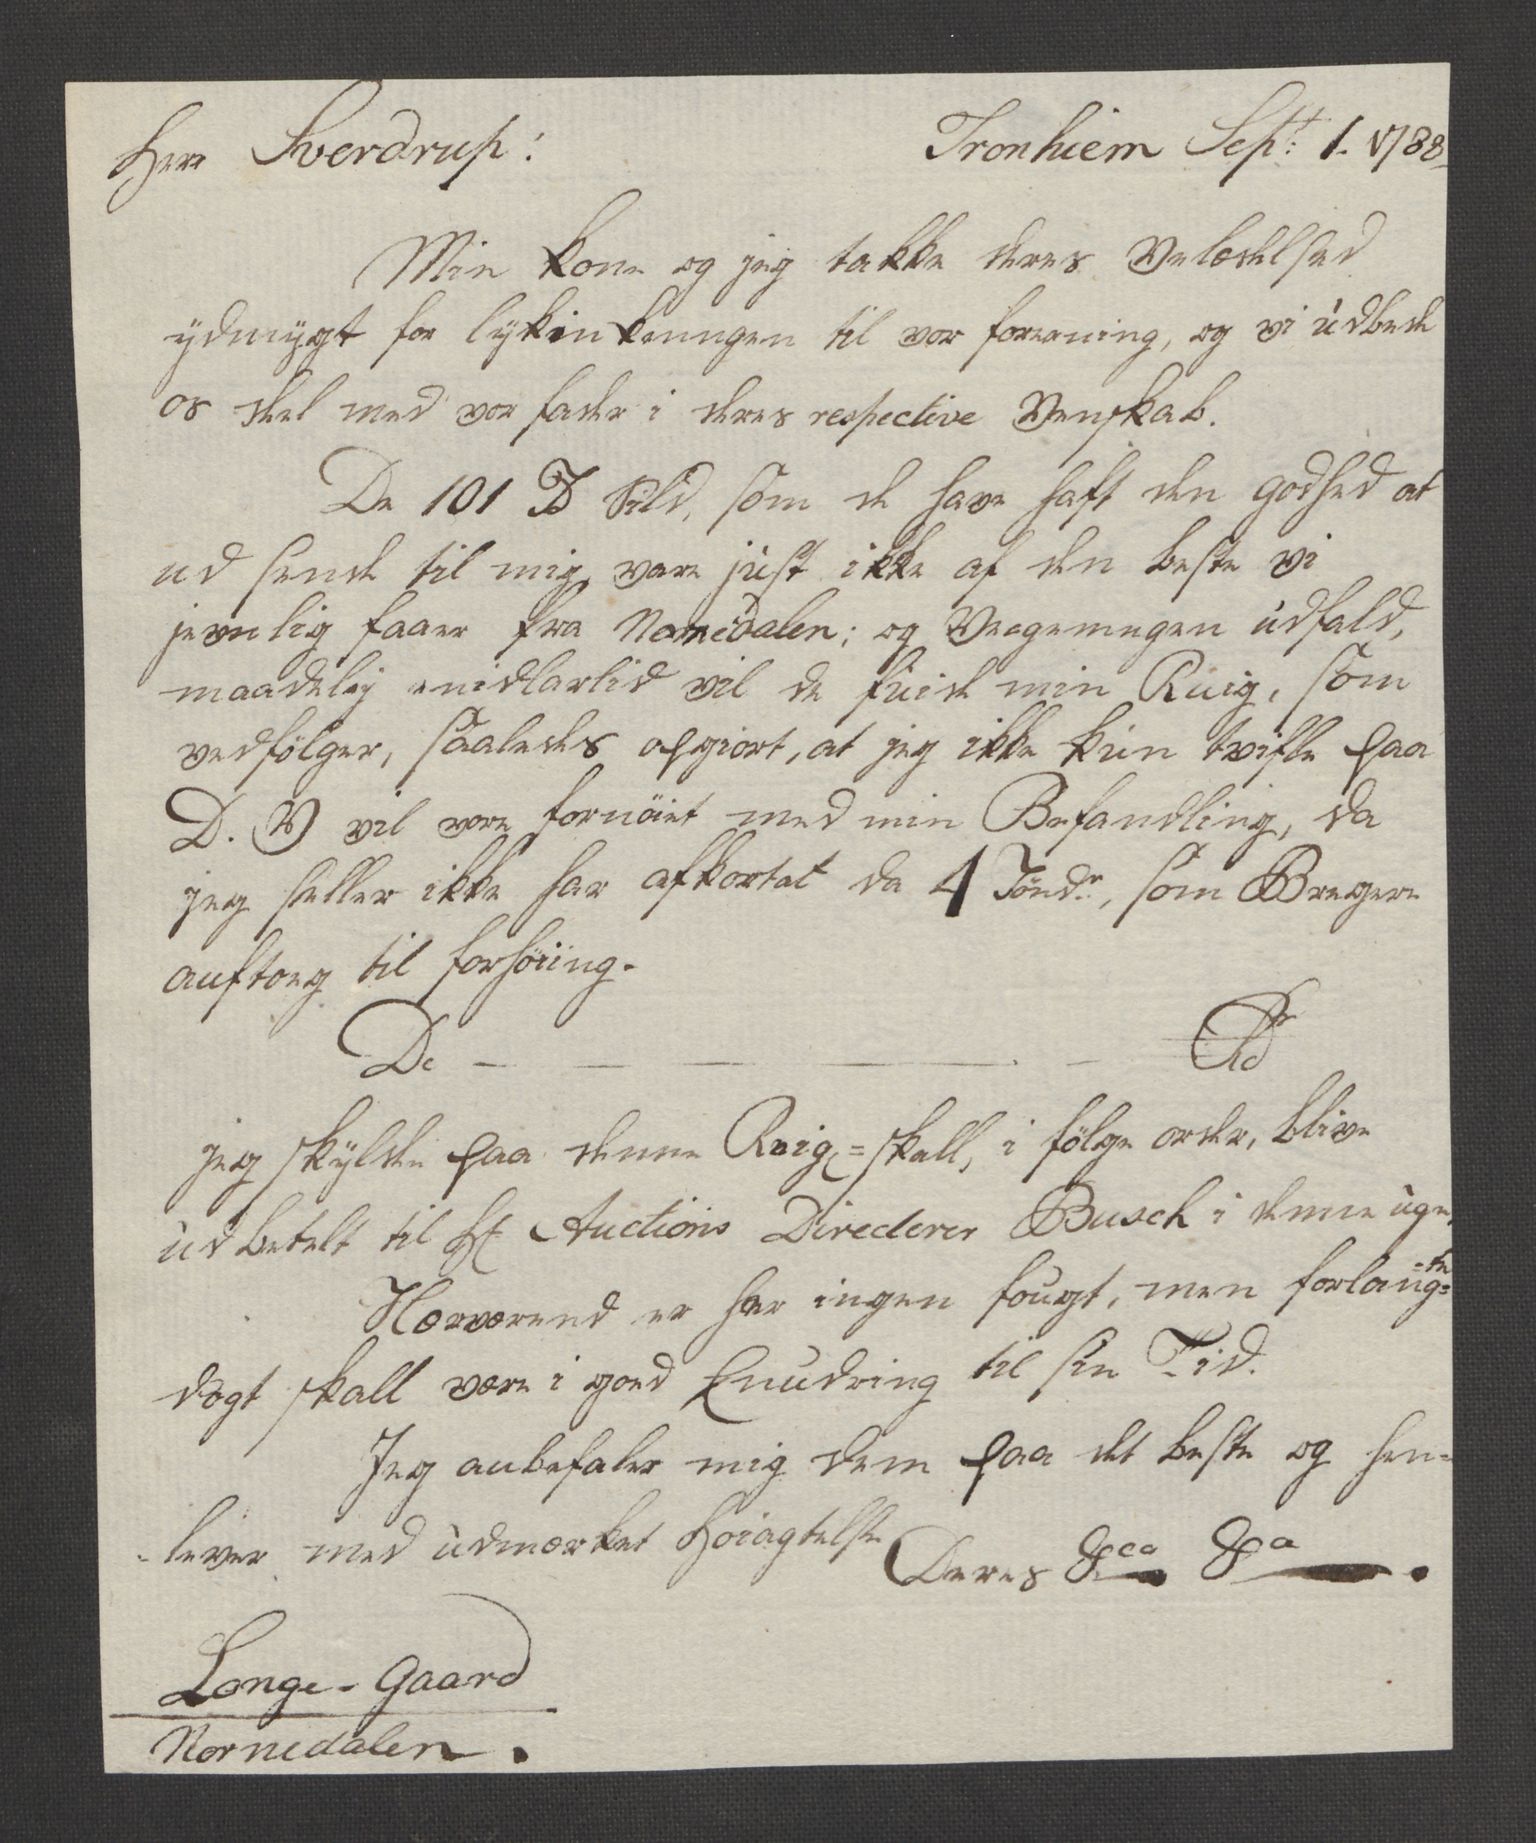 Herr Sverdrup! Tronhiem Sept: 1. 1788
Min kone og jeg takke deres Velædelhed
ydmygt for lykinskenngen til vor forening, og vi udbede
os deel med vor fader i deres respective Venskab.
De 101 T Sild, som de have haft den godhed at
ud sende til mig vare just ikke af den beste vi
jevnlig faaer fra Namedalen; og Vregerningen udfald,
maadelig imidlertid vil de finde min Regning, som
vedfölger, saaledes afgiort, at jeg ikke kun tvifle paa
D. V vil være fornöiet med min Behandling, da
jeg heller ikke har afkortet de 4 Tönd:r, som Bregere
ansaag til forhöiing.
De
jeg skylde paa denne Regn= skall, i fölge order, blive
udbetelt til Hr Auctions Directeur Busch i denne uge.
Nærværend er her ingen fougt, men forlang=
dogt skall være i goed Erindring til sin Tid.
Jeg anbefaler mig dem paa det beste og hen-
-lever med udmærket Höiagtelse Deres &ca &a
Longe-Gaard
Nornedalen.